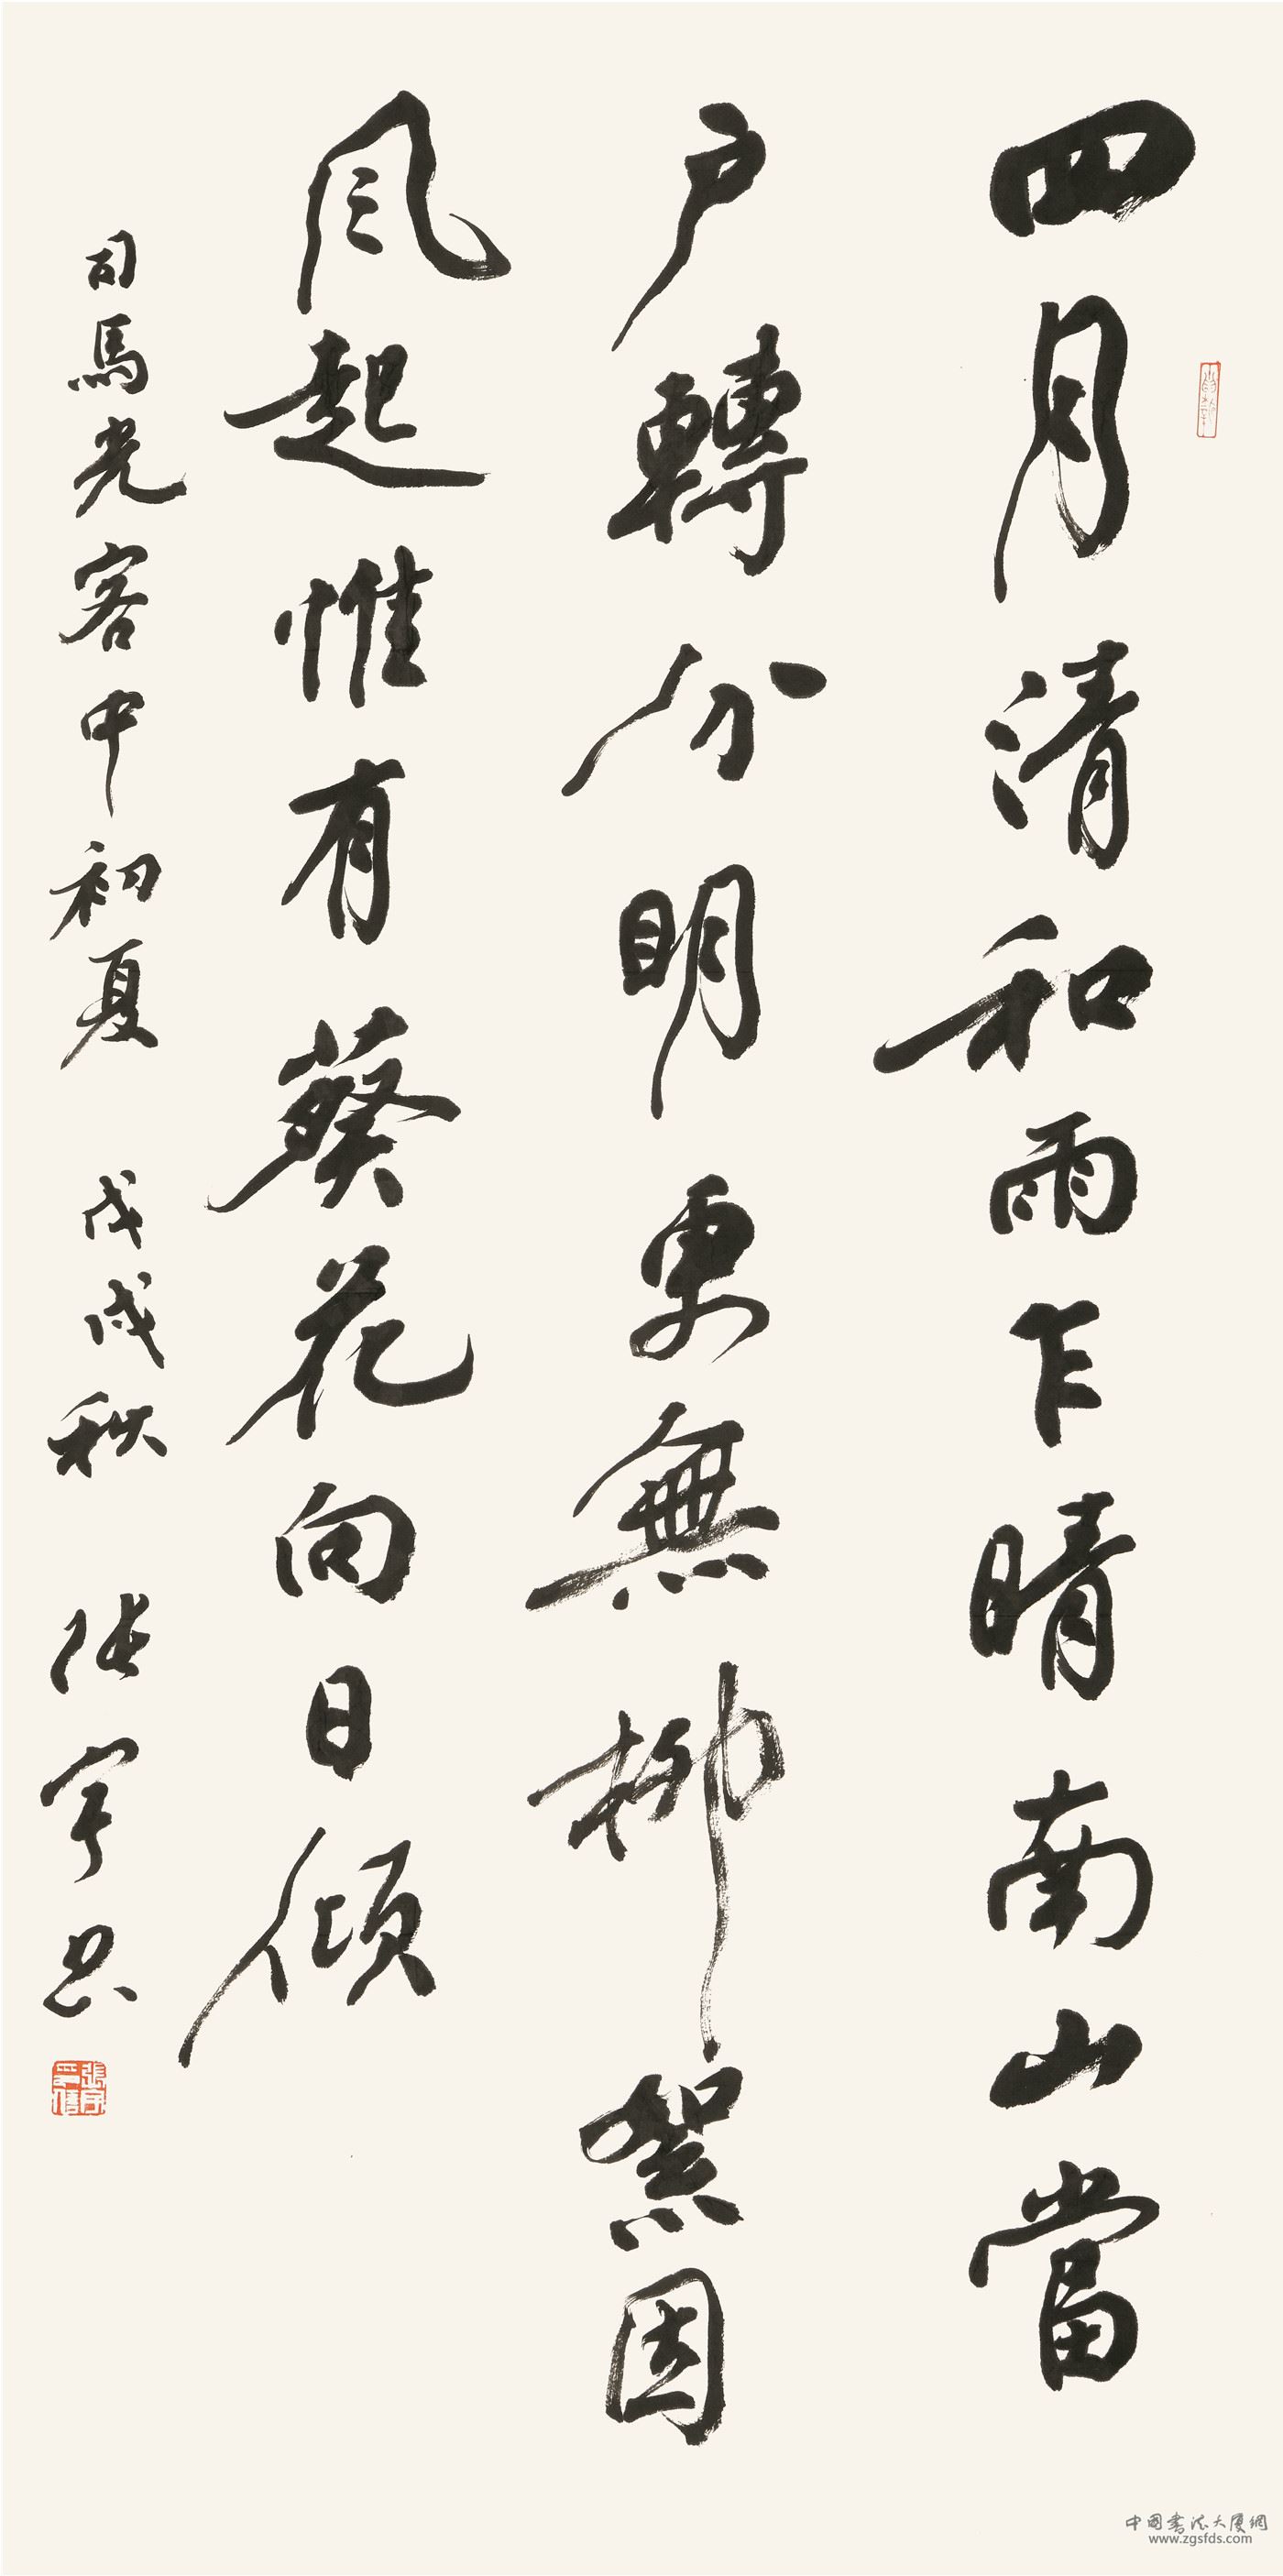 四月清和雨乍晴南山當
户轉分明更無柳絮因
風起惟有葵花向日傾
司馬光客中初夏 戊戌秋 張宇
中国書法大廈網
www.zgsfds.com